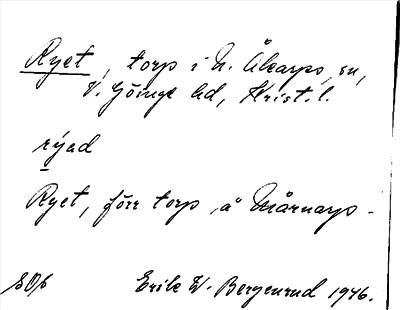 Ryet, torp i N. Åkarps, sn,
V. Göinge hd, Krist. l.
rýed
Ryet, förr torp å Mårnarp.
SOÖ Erik W. Bergenrud 1946.